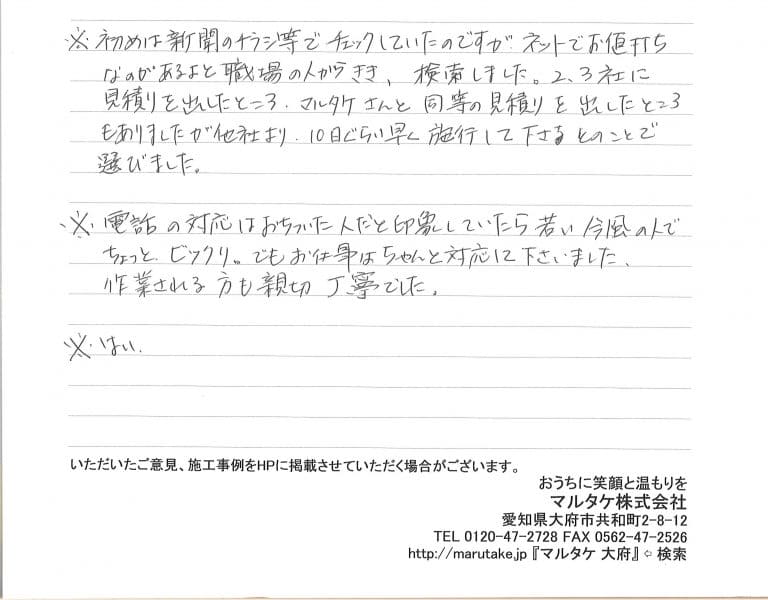 ※ 初めは新聞のチラシ等でチェックしていたのですが ネットでお値打ち
なのがあるよと職場の人からきき、検索しました。2、3社に
見積りを出したところ、マルタケさんと同等の見積りを出したところ
もありましたが他社より、10日ぐらい早く施行して下さるとのことで
選びました。
※ 電話の対応はおちついた人だと印象していたら若い今風の人で
ちょっとビックリ。でもお仕事はちゃんと対応して下さいました、
作業される方も親切丁寧でした。
※ はい.
いただいたご意見、施工事例をHPに掲載させていただく場合がございます。
おうちに笑顔と温もりを
マルタケ株式会社
愛知県大府市共和町2-8-12
TEL 0120-47-2728 FAX 0562-47-2526
http://marutake.jp『マルタケ 大府』⇦ 検索